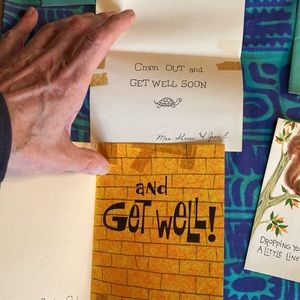 C'mon OUT and
GET WELL SOON
and
GET WELL!
DROPPING YO
A LITTLE LINE